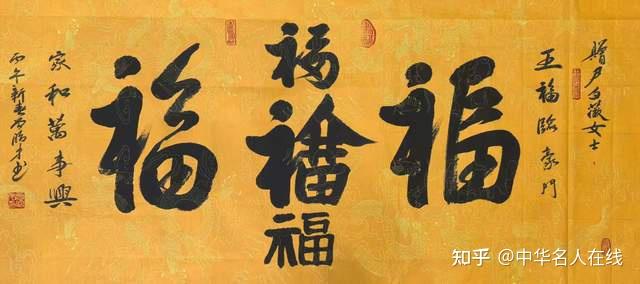 贈尹白薇女士
五福臨豪門
福
福
福
福
福
家和萬事興
丙午新春
知乎 @中华名人在线